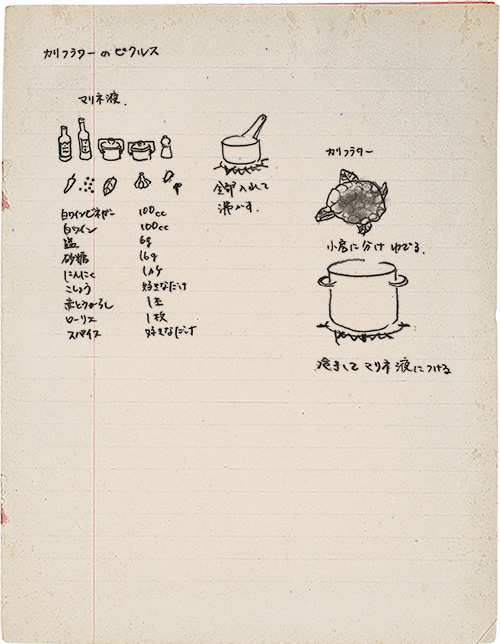 カリフラワーのピクルス
マリネ液
全部入れて
沸かす.
白ワインビネガー 100cc
白ワイン 100cc
塩 6g
砂糖 16g
にんにく 1カケ
こしょう 好きなだけ
赤とうがらし 1本
ローリエ 1枚
スパイス 好きなだけ
カリフラワー
小房に分けゆでる.
冷まして マリネ液につける